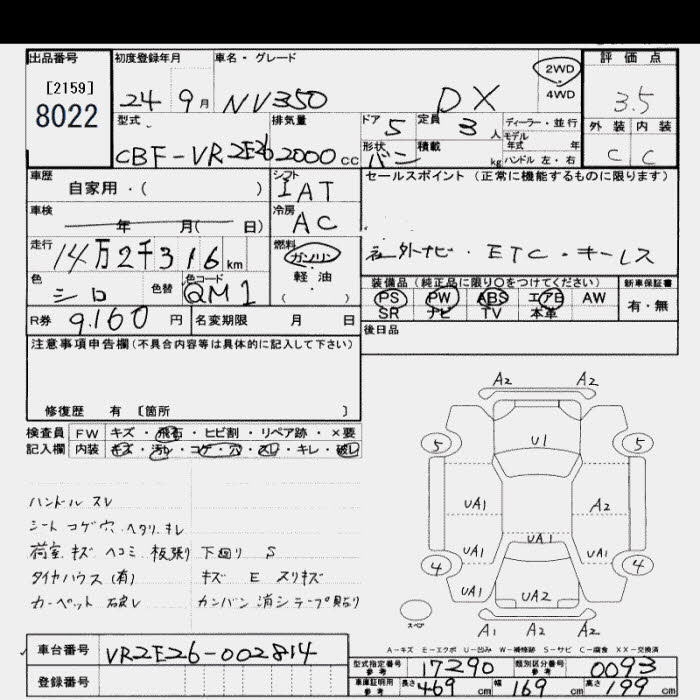 出品番号 初度登録年月 車名・グレード 評価点
[2159]
8022
24 9月 NV350 DX 2WD
4WD
3.5
型式 排気量 ドア 定員 ディーラー・並行 外装 内装
5 3人 モデル年式 年
CBF-VR2E26 2000cc 形状 積載 kg ハンドル 左・右 C C
バン
車歴 シフト セールスポイント(正常に機能するものに限ります)
自家用・( ) IAT
車検 冷房
年 月( 日) AC
走行 燃料
14万2千316km ガソリン 社外ナビ・ETC・キーレス
色 色替 色コード 軽油
シロ QM1 ( )
装備品(純正品に限り○をつけてください) 新車保証書
PS PW ABS エアB AW 有・無
SR ナビ TV 本革
R券 9.160円 名変期限 月 日 後日品
注意事項申告欄(不具合内容等は具体的に記入して下さい)
修復歴 有 [箇所 ]
検査員 FW キズ・飛石・ヒビ割・リペア跡・×要
記入欄 内装 キズ・汚レ・コゲ・穴・スレ・キレ・破レ
ハンドル スレ
シート コゲ穴.ヘタリ.キレ
荷室.キズ ヘコミ 板張り 下廻り S
タイヤハウス(有) キズ E スリキズ
カーペット 破レ カンバン消シテープ貼り
A2 A2
5 U1 5
UA1 A2
UA1 UA1 UA1
4 4
UA1 UA2
スペア A1 A2 A2
A-キズ E-エクボ U-凹み W-補修跡 S-サビ C-腐食 XX-交換済
車台番号 VR2E26-002814
登録番号
型式指定番号参考 17290 類別区分番号参考 0093
車庫証明用参考 長さ 469cm 幅 169cm 高さ 199cm